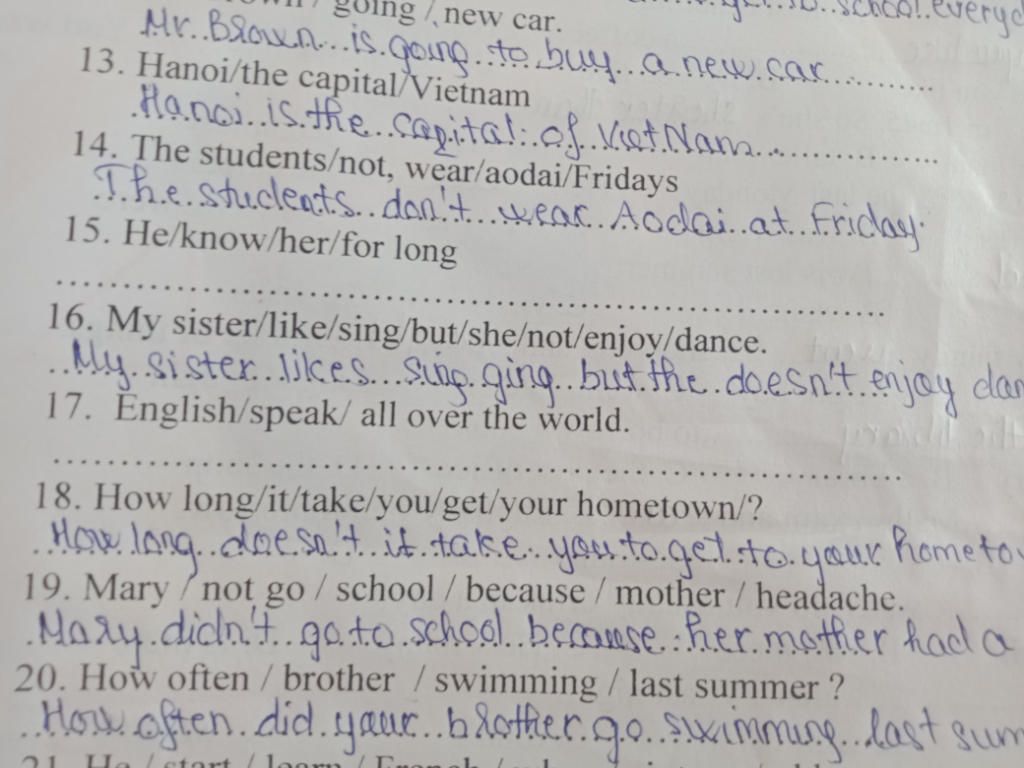 going / new car. school everyd
Mr. Brown is going to buy a new car
13. Hanoi/the capital/Vietnam
Hanoi is the capital of VietNam
14. The students/not, wear/aodai/Fridays
The students don't wear Aodai at Friday.
15. He/know/her/for long
16. My sister/like/sing/but/she/not/enjoy/dance.
My sister likes singging but the doesn't enjoy dan
17. English/speak/ all over the world.
18. How long/it/take/you/get/your hometown/?
How long doesn't it take you to get to your hometo
19. Mary / not go / school / because / mother / headache.
Mary didn't go to school because her mother had a
20. How often / brother / swimming / last summer ?
How often did your brother go swimming last sum
21. He / start / learn / French /